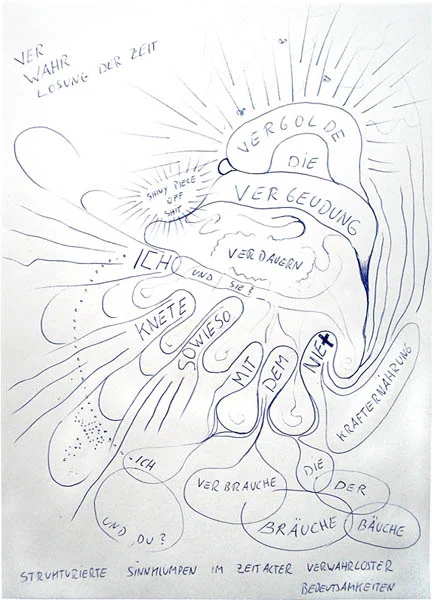 VER
WAHR
LOSUNG DER ZEIT
VERGOLDE
DIE
VERGEUDUNG
SHINY PIECE
OFF
SHIT
VERDAUERN
ICH
UND SIE?
KNETE
SOWIESO
MIT
DEM
NIE†
KRAFTERNÄHRUNG
ICH
VERBRAUCHE
DIE
DER
UND DU?
BRÄUCHE
BÄUCHE
STRUKTURIERTE SINNKLUMPEN IM ZEITALTER VERWAHRLOSTER
BEDEUTSAMKEITEN